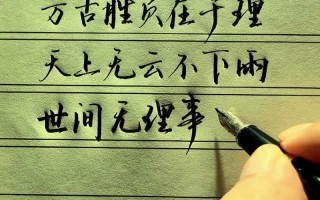 万古胜负在于理
天上无云不下雨
世间无理事